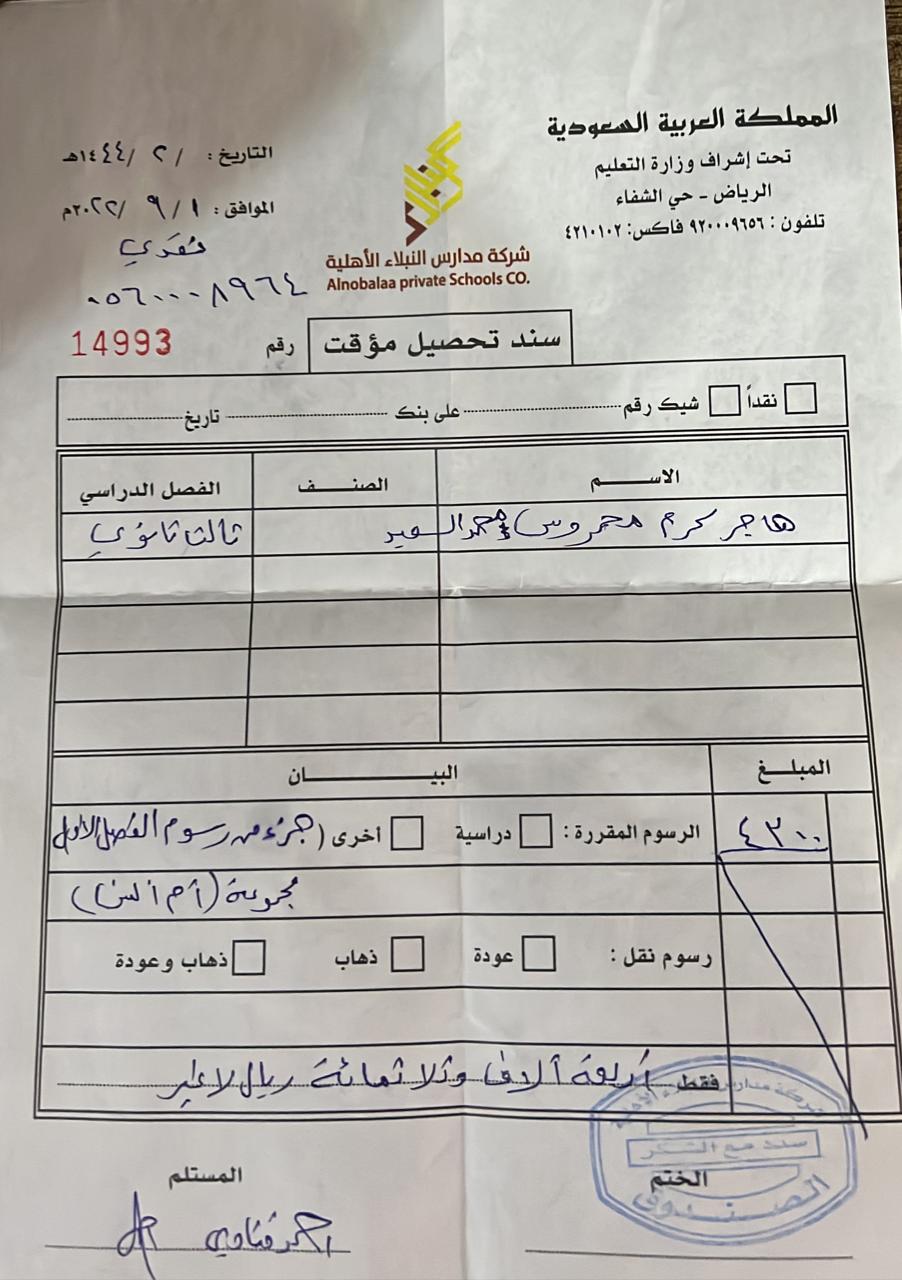 المملكة العربية السعودية
تحت إشراف وزارة التعليم
الرياض - حي الشفاء
تلفون : ٩٢٠٠٠٩٦٥٦ فاكس: ٤٢١٠١٠٢
شركة مدارس النبلاء الأهلية
Alnobalaa private Schools CO.
التاريخ : / ٢ / ١٤٤٤هـ
الموافق : ١ / ٩ / ٢٠٢٢م
نقدي
٠٥٦٠٠٠٨٩٦٤
سند تحصيل مؤقت رقم 14993
نقداً شيك رقم على بنك تاريخ
الاسم الصنف الفصل الدراسي
هاجر كرم محروس محمد السعيد ثالث ثانوي
المبلغ البيان
٤٣٠٠ الرسوم المقررة : دراسية أخرى (جزء من رسوم الفصل الأول
مجموعة (أم أنس)
رسوم نقل : عودة ذهاب ذهاب وعودة
فقط أربعة آلاف وثلاثمائة ريال لا غير
شركة مدارس النبلاء الأهلية
سدد مع الشكر
الصندوق
الختم المستلم
احمد